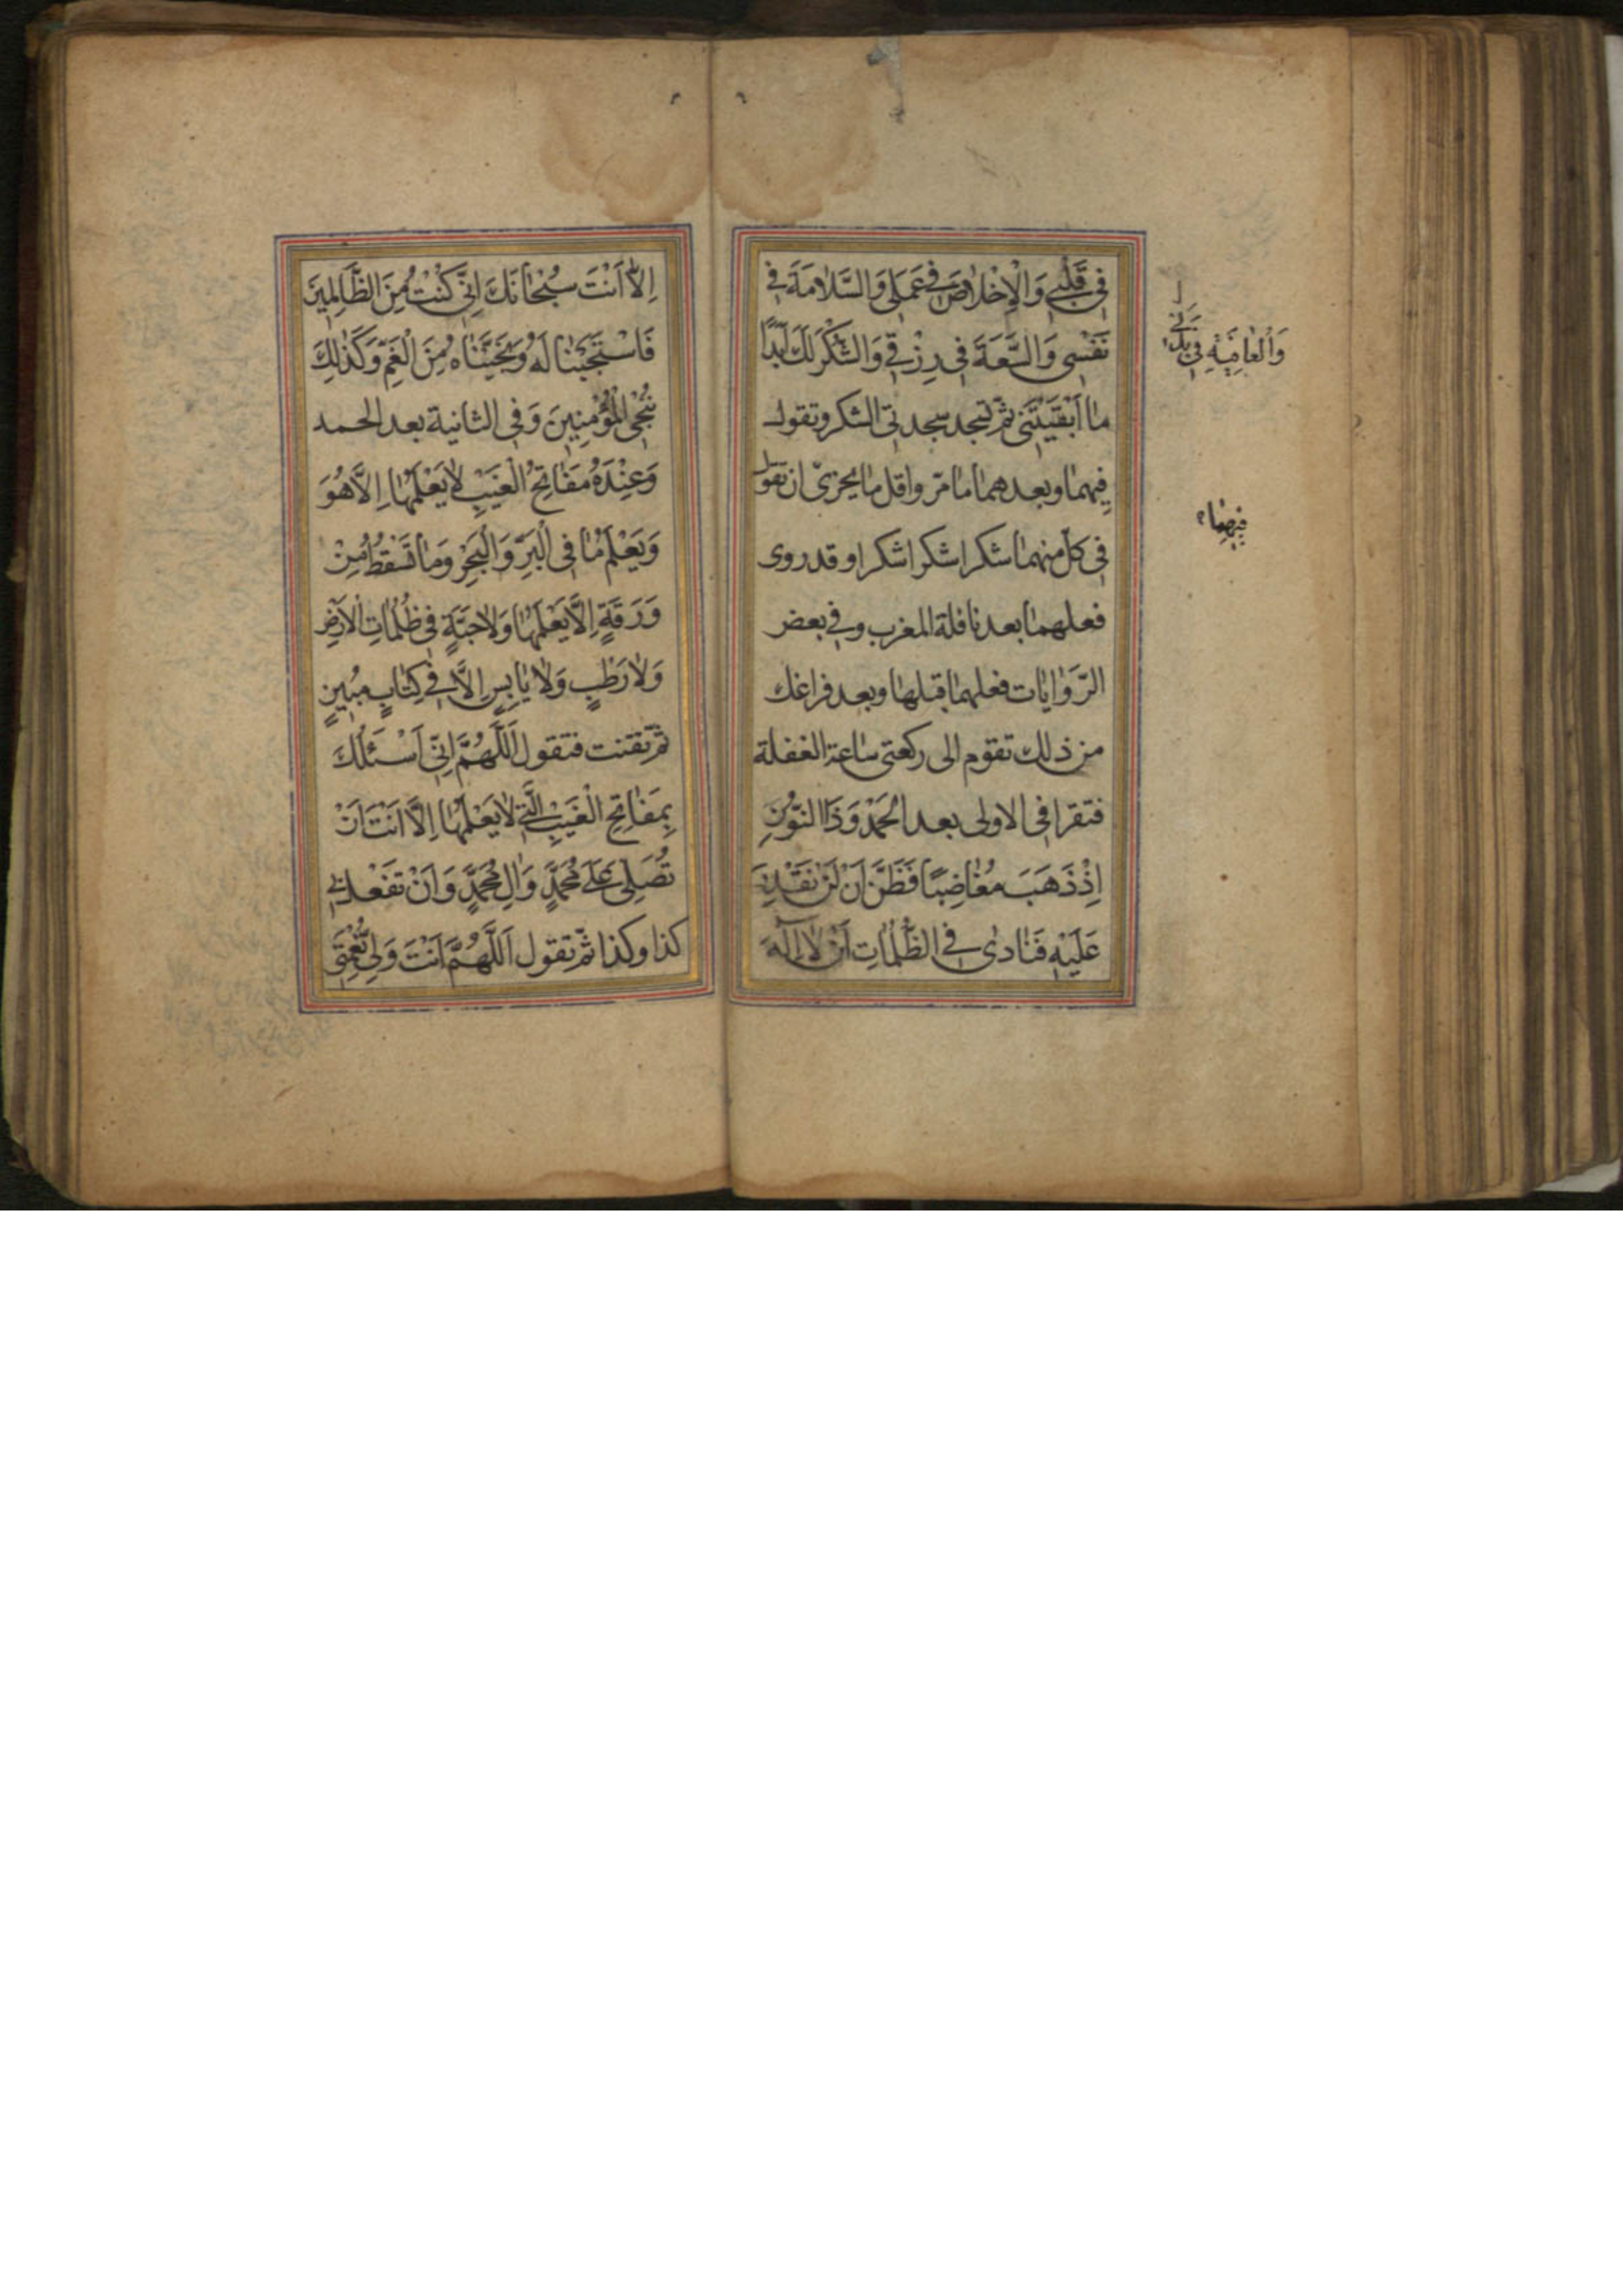 فِى قَلْبِى وَالْاِخْلاٰصَ فِى عَمَلِى وَالسَّلاٰمَةَ فِى
نَفْسِى وَالسَّعَةَ فِى رِزْقِى وَالشُّكْرَ لَكَ اَبَدًا
مٰا اَبْقَيْتَنِى ثمّ تسجد سجدتى الشكر وتقول
فيهما وبعدهما ما مرّ واقل ما يجزىّ ان تقول
فى كلّ منهما شكرا شكرا شكرا و قد روى
فعلهما بعد نافلة المغرب وفى بعض
الرّوايات فعلهما قبلها وبعد فراغك
من ذلك تقوم الى ركعتى ساعة الغفلة
فتقرا فى الاولى بعد الحَمْد وَذَا النُّونِ
اِذْ ذَهَبَ مُغٰاضِبًا فَظَنَّ اَنْ لَنْ نَقْدِرَ
عَلَيْهِ فَنٰادىٰ فِى الظُّلُمٰاتِ اَنْ لاٰ اِلٰهَ
وَالْعٰافِيَةِ فِى بَدَنِى
فيهما
اِلاّٰ اَنْتَ سُبْحٰانَكَ اِنِّى كُنْتُ مِنَ الظّٰالِمِينَ
فَاسْتَجَبْنٰا لَهُ وَنَجَّيْنٰاهُ مِنَ الْغَمِّ وَكَذٰلِكَ
نُنْجِى الْمُؤْمِنِينَ وَفى الثانية بعد الحمد
وَعِنْدَهُ مَفٰاتِحُ الْغَيْبِ لاٰ يَعْلَمُهٰا اِلاَّ هُوَ
وَيَعْلَمُ مٰا فِى الْبَرِّ وَالْبَحْرِ وَمٰا تَسْقُطُ مِنْ
وَرَقَةٍ اِلاَّ يَعْلَمُهٰا وَلاٰ حَبَّةٍ فِى ظُلُمٰاتِ الْاَرْضِ
وَلاٰ رَطْبٍ وَلاٰ يٰابِسٍ اِلاَّ فِى كِتٰابٍ مُبِينٍ
ثمّ تقنت فتقول اَللّٰهُمَّ اِنِّى اَسْئَلُكَ
بِمَفٰاتِحِ الْغَيْبِ الَّتِى لاٰ يَعْلَمُهٰا اِلاَّ اَنْتَ اَنْ
تُصَلِّىَ عَلىٰ مُحَمَّدٍ وَاٰلِ مُحَمَّدٍ وَاَنْ تَفْعَلَ بِى
كذا وكذا ثمّ تقول اَللّٰهُمَّ اَنْتَ وَلِىُّ نِعْمَتِى